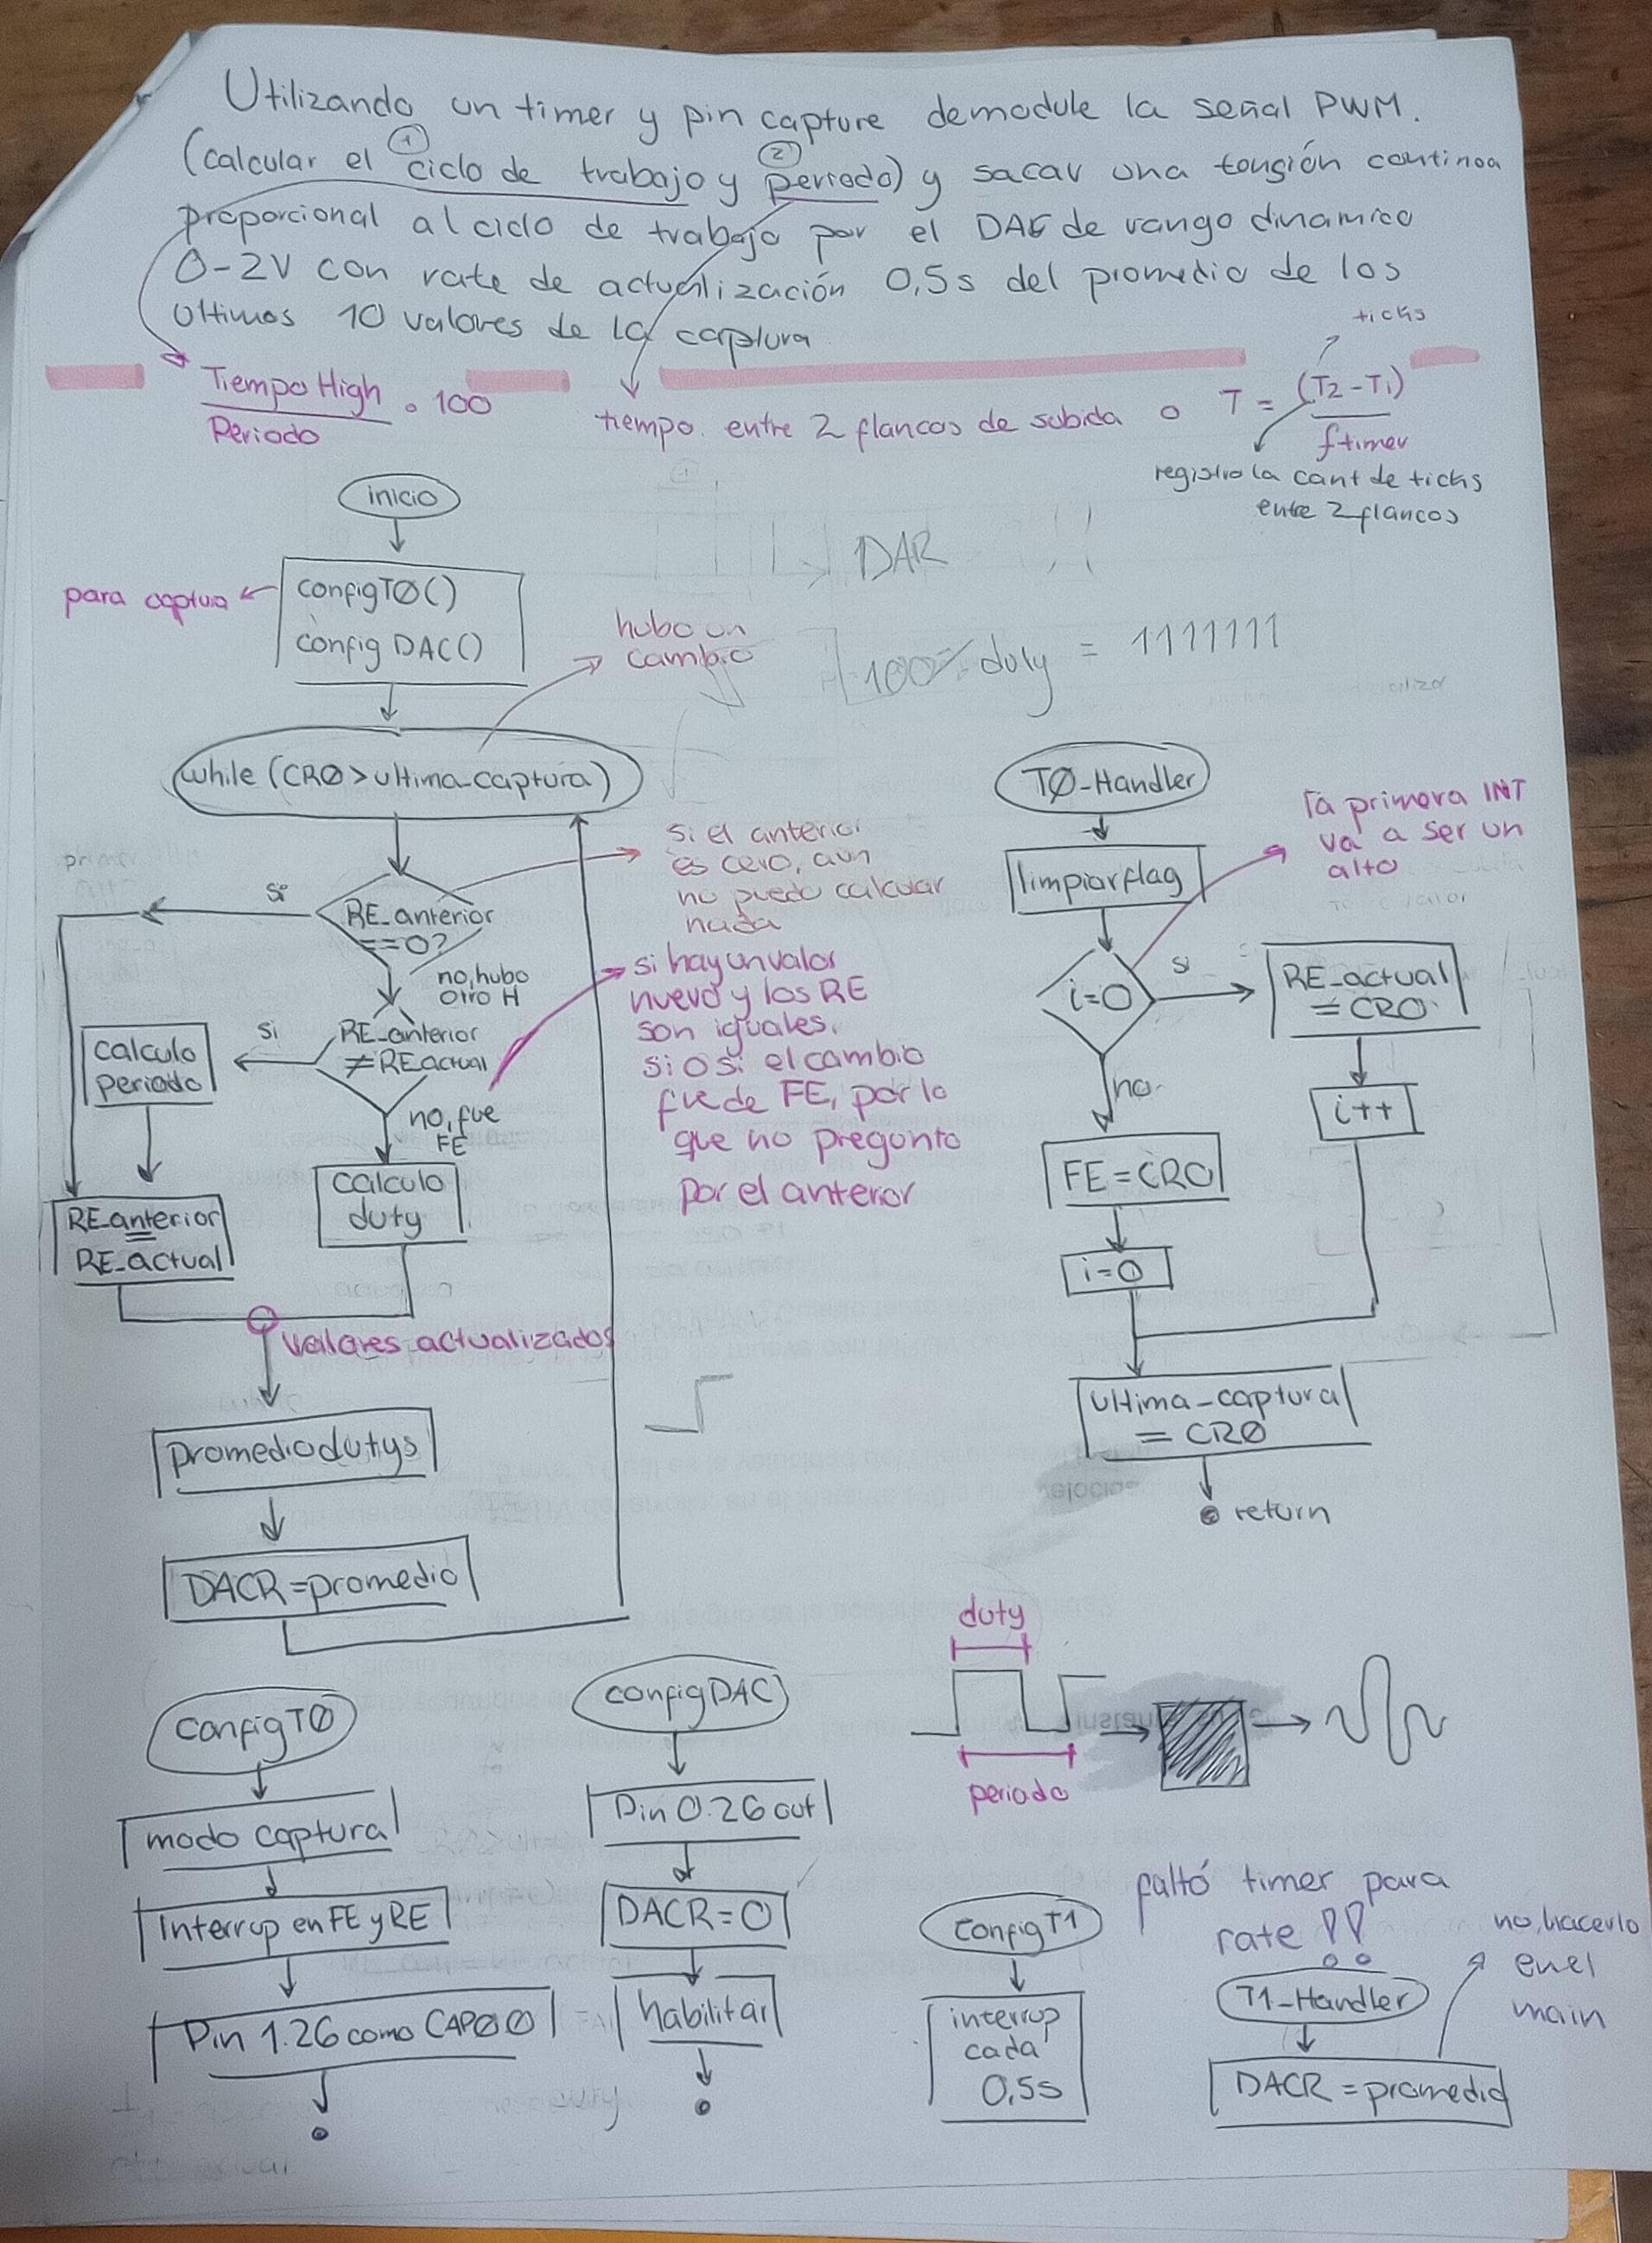 Utilizando un timer y pin capture demodule la señal PWM.
(calcular el ciclo de trabajo y periodo) y sacar una tensión continoa
① ②
proporcional al ciclo de trabajo por el DAC de rango dinamico
0-2V con rate de actualización 0,5s del promedio de los
ultimos 10 valores de la captura
Tiempo High
Periodo
. 100
tiempo. entre 2 flancos de subida o T = (T2-T1)
ftimer
ticks
registro la cant de ticks
entre 2 flancos
inicio
configTØ()
config DAC()
para captura
DAR
100% duty = 1111111
hubo un
cambio
while (CRØ>ultima_captura)
RE_anterior
==0?
si
si el anterior
es cero, aun
no puedo calcular
nada
no, hubo
otro H
RE_anterior
≠ REactual
si
no, fue
FE
si hay un valor
nuevo y los RE
son iguales,
si o si el cambio
fue de FE, por lo
que no pregunto
por el anterior
calculo
periodo
calculo
duty
RE_anterior
=
RE_actual
valores actualizados
promediodutys
DACR=promedio
TØ-Handler
limpiarflag
la primera INT
va a ser un
alto
i=0
si
RE_actual
=CRO.
i++
no.
FE=CRO
i=0
ultima_captura
= CRØ
return
duty
periodo
configTØ
modo captura
Interrup en FE y RE
Pin 1.26 como CAPØØ
configDAC
Pin 0.26 out
DACR=0
habilitar
faltó timer para
rate !!
configT1
interrup
cada
0,5s
T1_Handler
DACR=promedio
no, hacerlo
en el
main